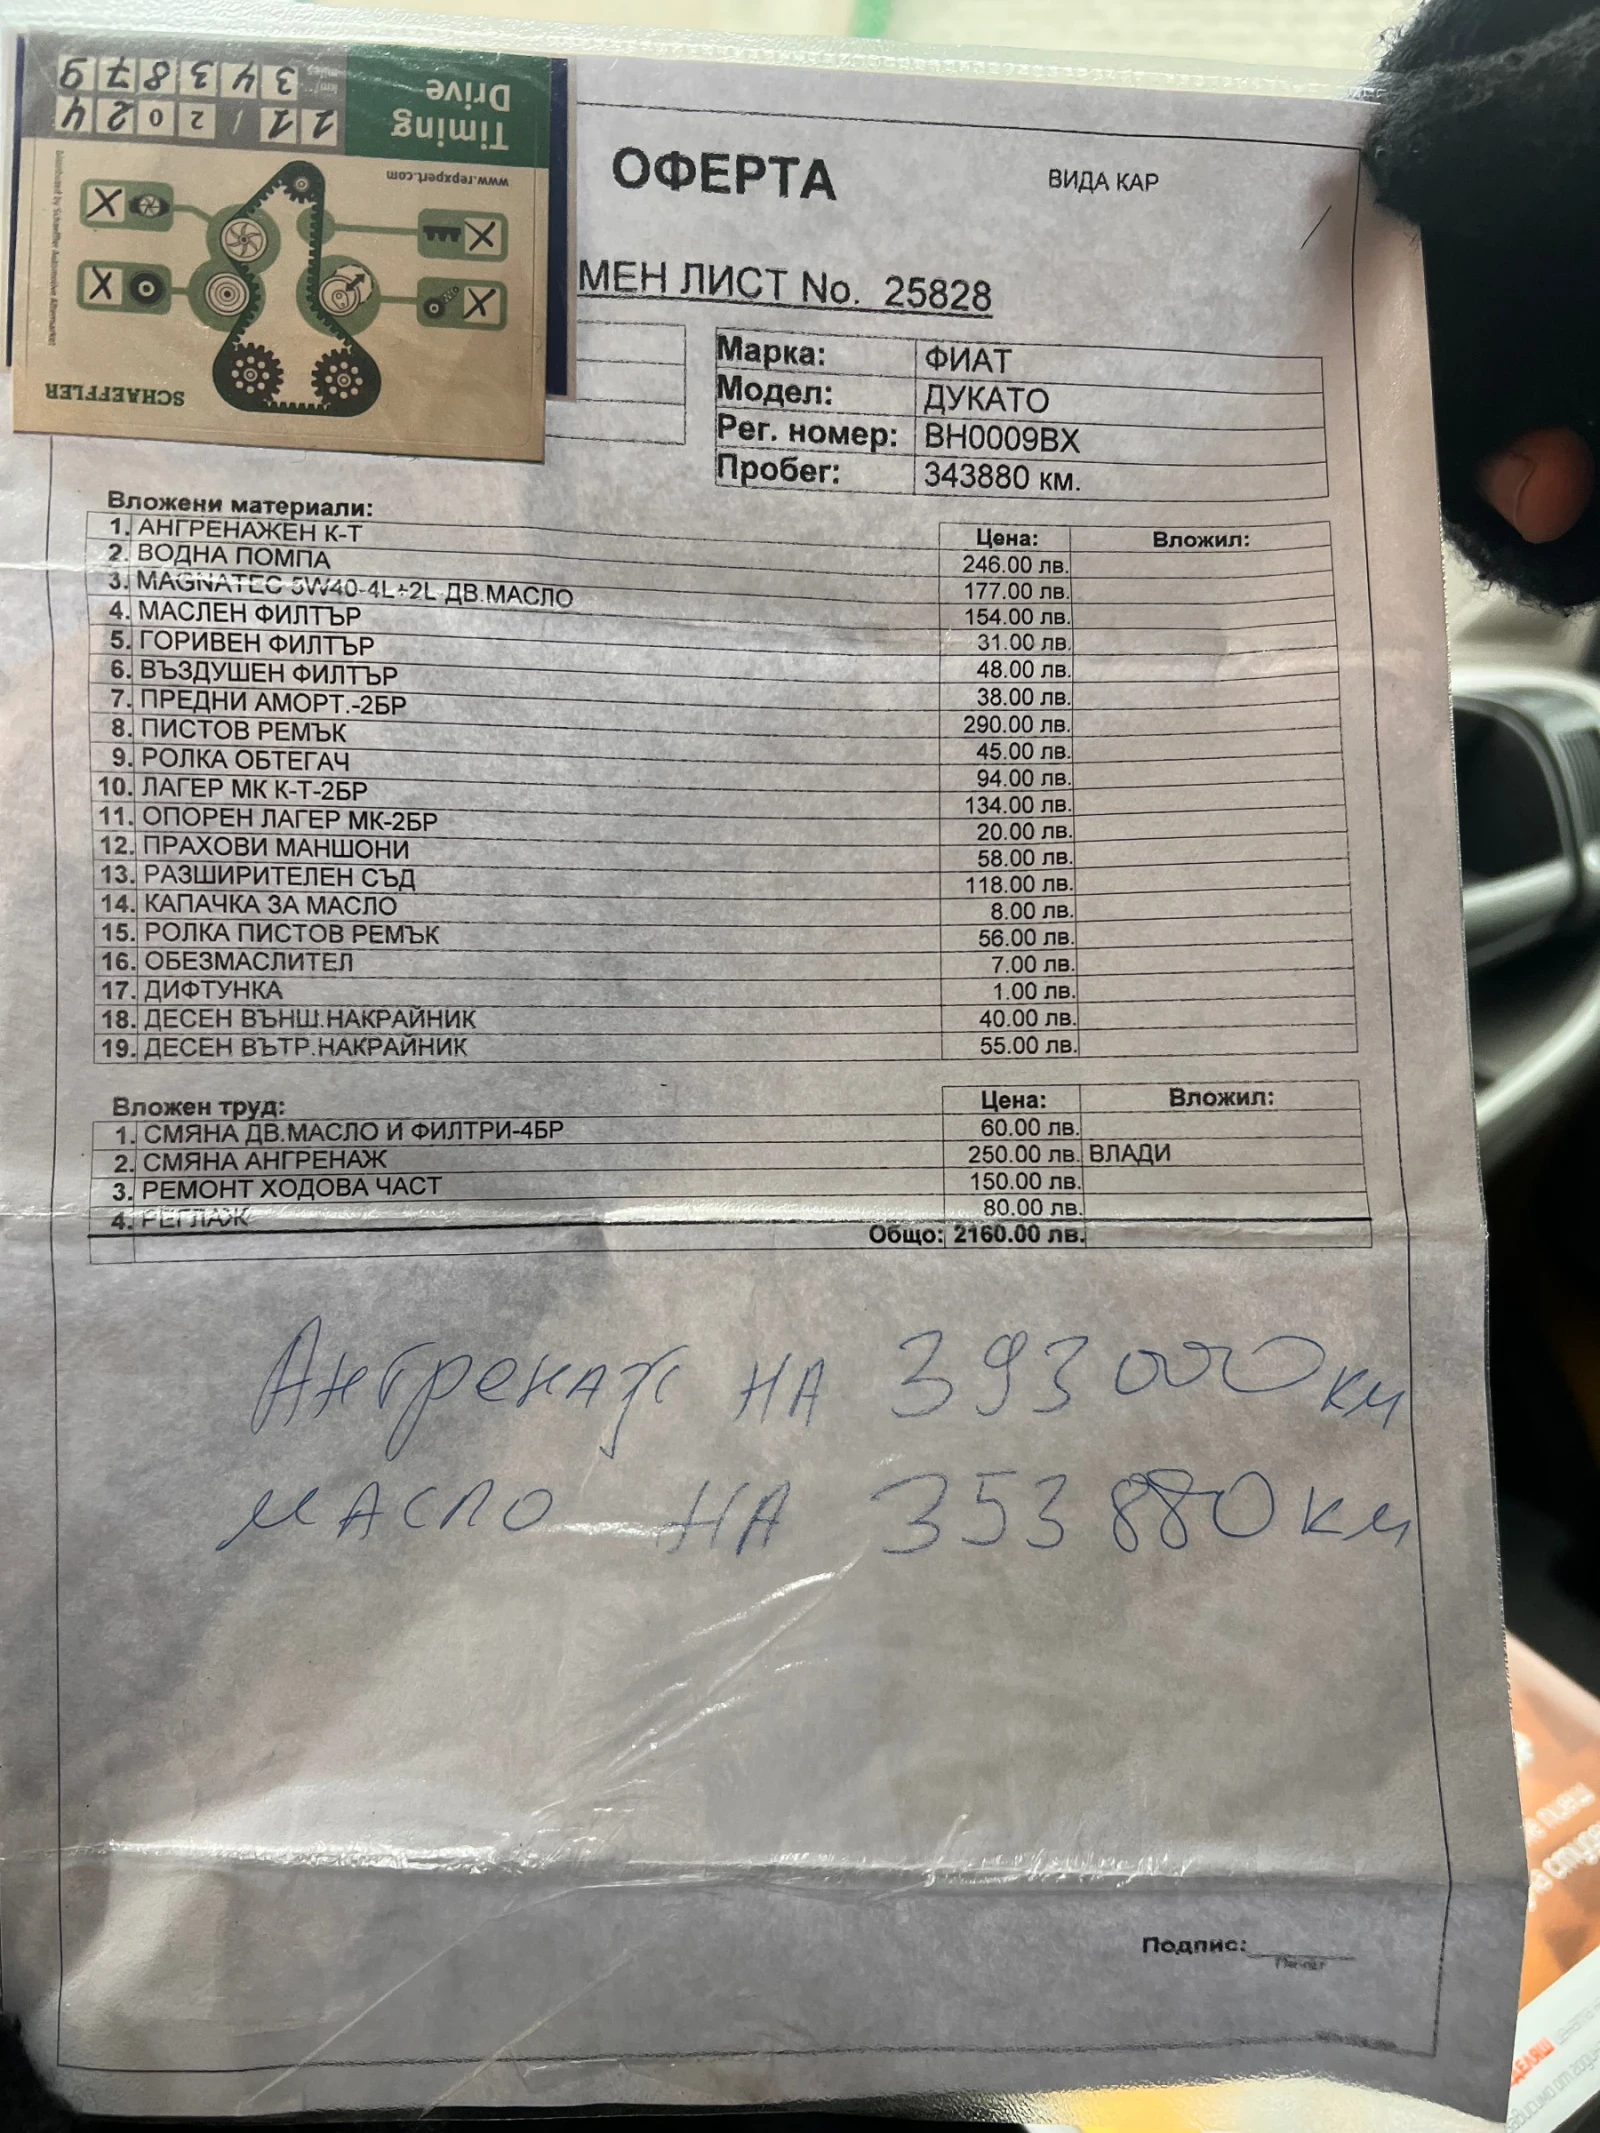 Timing
Drive
11/2024
km/miles
343879
www.repxpert.com
Distributed by Schaeffler Automotive Aftermarket
SCHAEFFLER
ОФЕРТА
ВИДА КАР
МЕН ЛИСТ No. 25828
Марка: ФИАТ
Модел: ДУКАТО
Рег. номер: ВН0009ВХ
Пробег: 343880 км.
Вложени материали: Цена: Вложил:
1. АНГРЕНАЖЕН К-Т 246.00 лв.
2. ВОДНА ПОМПА 177.00 лв.
3. MAGNATEC 5W40-4L+2L ДВ.МАСЛО 154.00 лв.
4. МАСЛЕН ФИЛТЪР 31.00 лв.
5. ГОРИВЕН ФИЛТЪР 48.00 лв.
6. ВЪЗДУШЕН ФИЛТЪР 38.00 лв.
7. ПРЕДНИ АМОРТ.-2БР 290.00 лв.
8. ПИСТОВ РЕМЪК 45.00 лв.
9. РОЛКА ОБТЕГАЧ 94.00 лв.
10. ЛАГЕР МК К-Т-2БР 134.00 лв.
11. ОПОРЕН ЛАГЕР МК-2БР 20.00 лв.
12. ПРАХОВИ МАНШОНИ 58.00 лв.
13. РАЗШИРИТЕЛЕН СЪД 118.00 лв.
14. КАПАЧКА ЗА МАСЛО 8.00 лв.
15. РОЛКА ПИСТОВ РЕМЪК 56.00 лв.
16. ОБЕЗМАСЛИТЕЛ 7.00 лв.
17. ДИФТУНКА 1.00 лв.
18. ДЕСЕН ВЪНШ.НАКРАЙНИК 40.00 лв.
19. ДЕСЕН ВЪТР.НАКРАЙНИК 55.00 лв.
Вложен труд: Цена: Вложил:
1. СМЯНА ДВ.МАСЛО И ФИЛТРИ-4БР 60.00 лв.
2. СМЯНА АНГРЕНАЖ 250.00 лв. ВЛАДИ
3. РЕМОНТ ХОДОВА ЧАСТ 150.00 лв.
4. РЕГЛАЖ 80.00 лв.
Общо: 2160.00 лв.
Ангренаж на 393000 км
масло на 353880 км
Подпис: